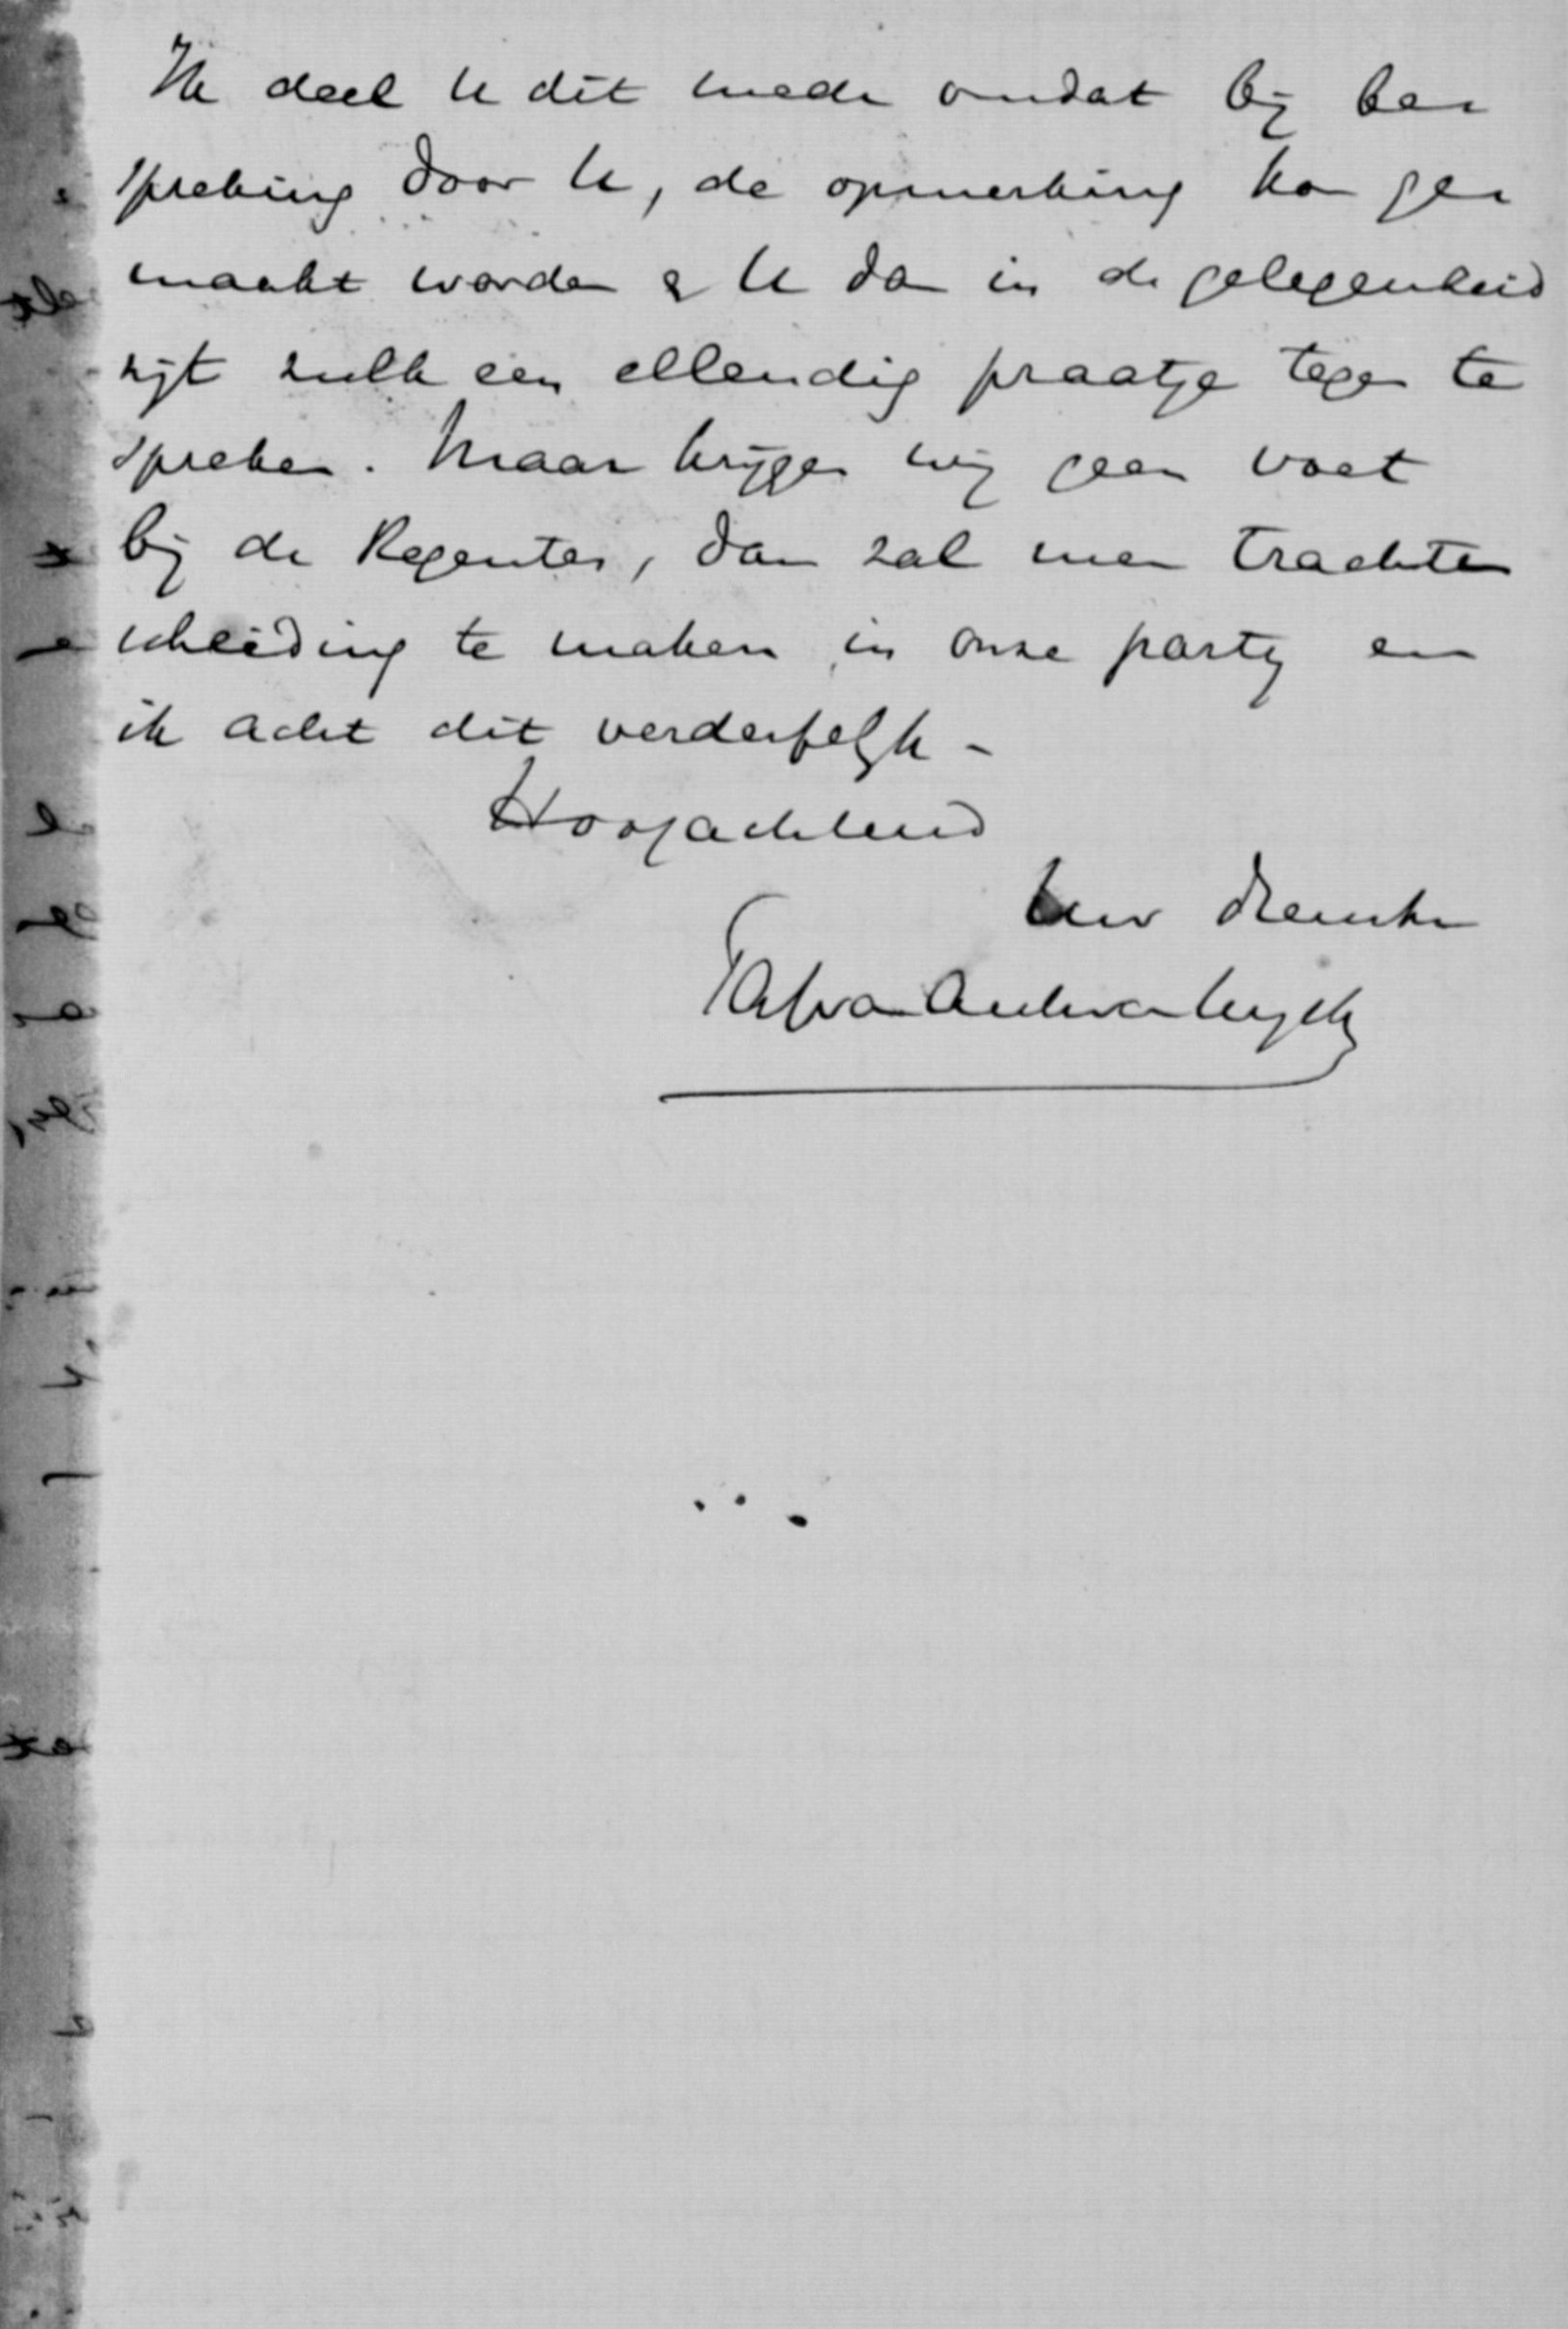 Ik deel U dit mede omdat bij be
spreking door U, de opmerking kan ge
maakt worden & U dan in de gelegenheid
zijt zulk een ellendig praatje tegen te
spreken. Maar krijgen wij geen voet
bij de Regenten, dan zal men trachten
scheiding te maken in onze partij en
ik acht dit verderfelijk -
Hoogachtend
Uw